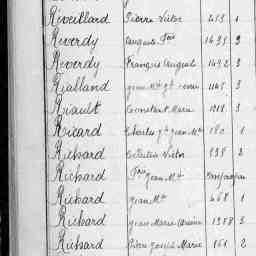 Réveillard Pierre Victor 253 1
Reverdy Auguste 1433 3
Reverdy François Auguste 1492 3
Rialland Jean 1145 3
Riault Constant Marie 1018 3
Ricard Charles Jean 180 1
Richard Célestin Victor 838 2
Richard Jean
Richard Jean 468 1
Richard Jean Marie 1758 3
Richard Pierre Joseph Marie 861 2